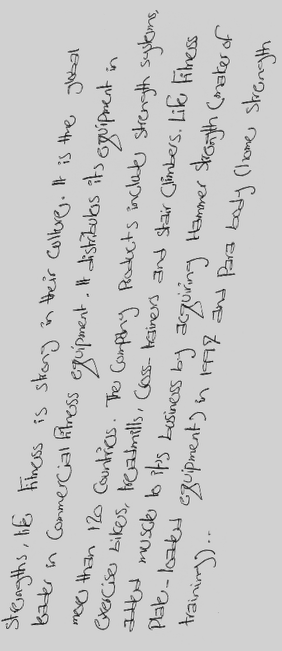 Strengths, life fitness is strong in their culture. It is the global
leader in Commercial fitness equipment. It distributes its equipment in
more than 120 Countries. The Company Products include strength systems,
exercise bikes, treadmills, Cross-trainers and stair climbers. Life Fitness
added muscle to it's business by acquiring Hammer Strength (maker of
Plate-loaded equipment) in 1997 and Para body (home strength
training)...